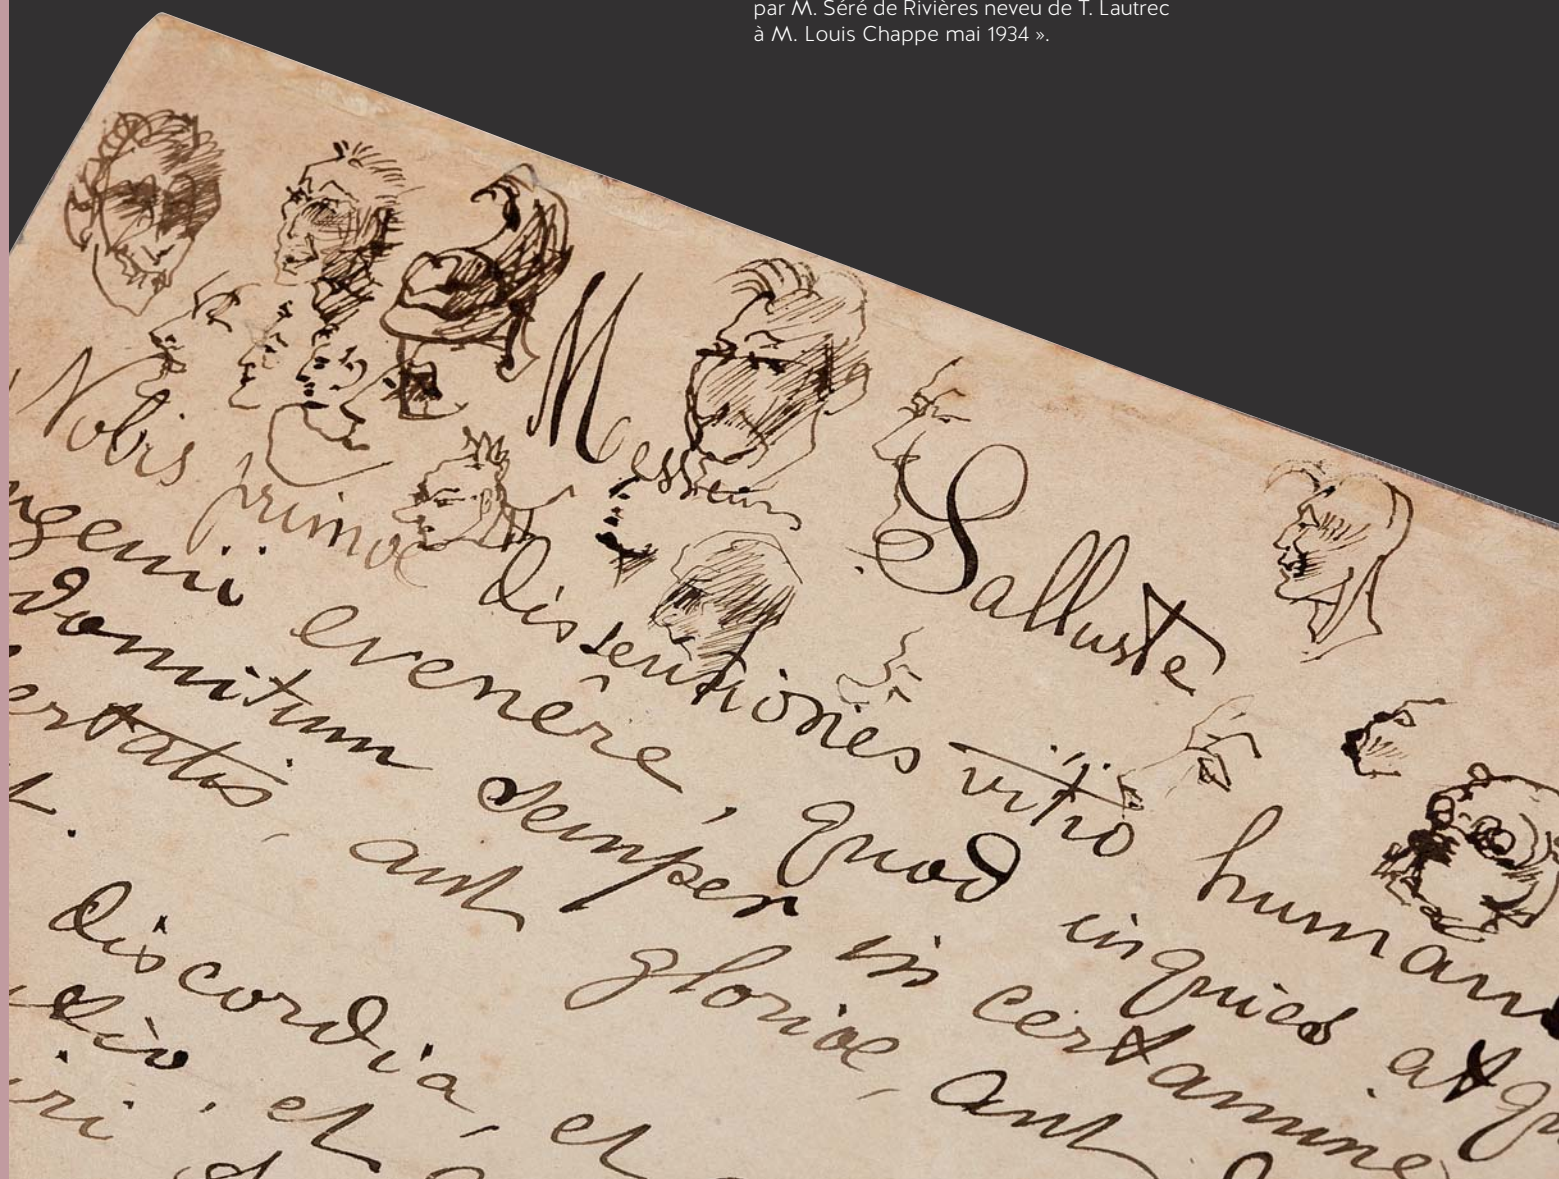 par M. Séré de Rivières neveu de T. Lautrec
à M. Louis Chappe mai 1934 ».
Salluste
Nobis primæ dissentiones vitio human
ngenii evenêre, quod inquies atqu
domitum semper in certamine
ertatis, aut gloriæ, aut
t.
discordia, et
et